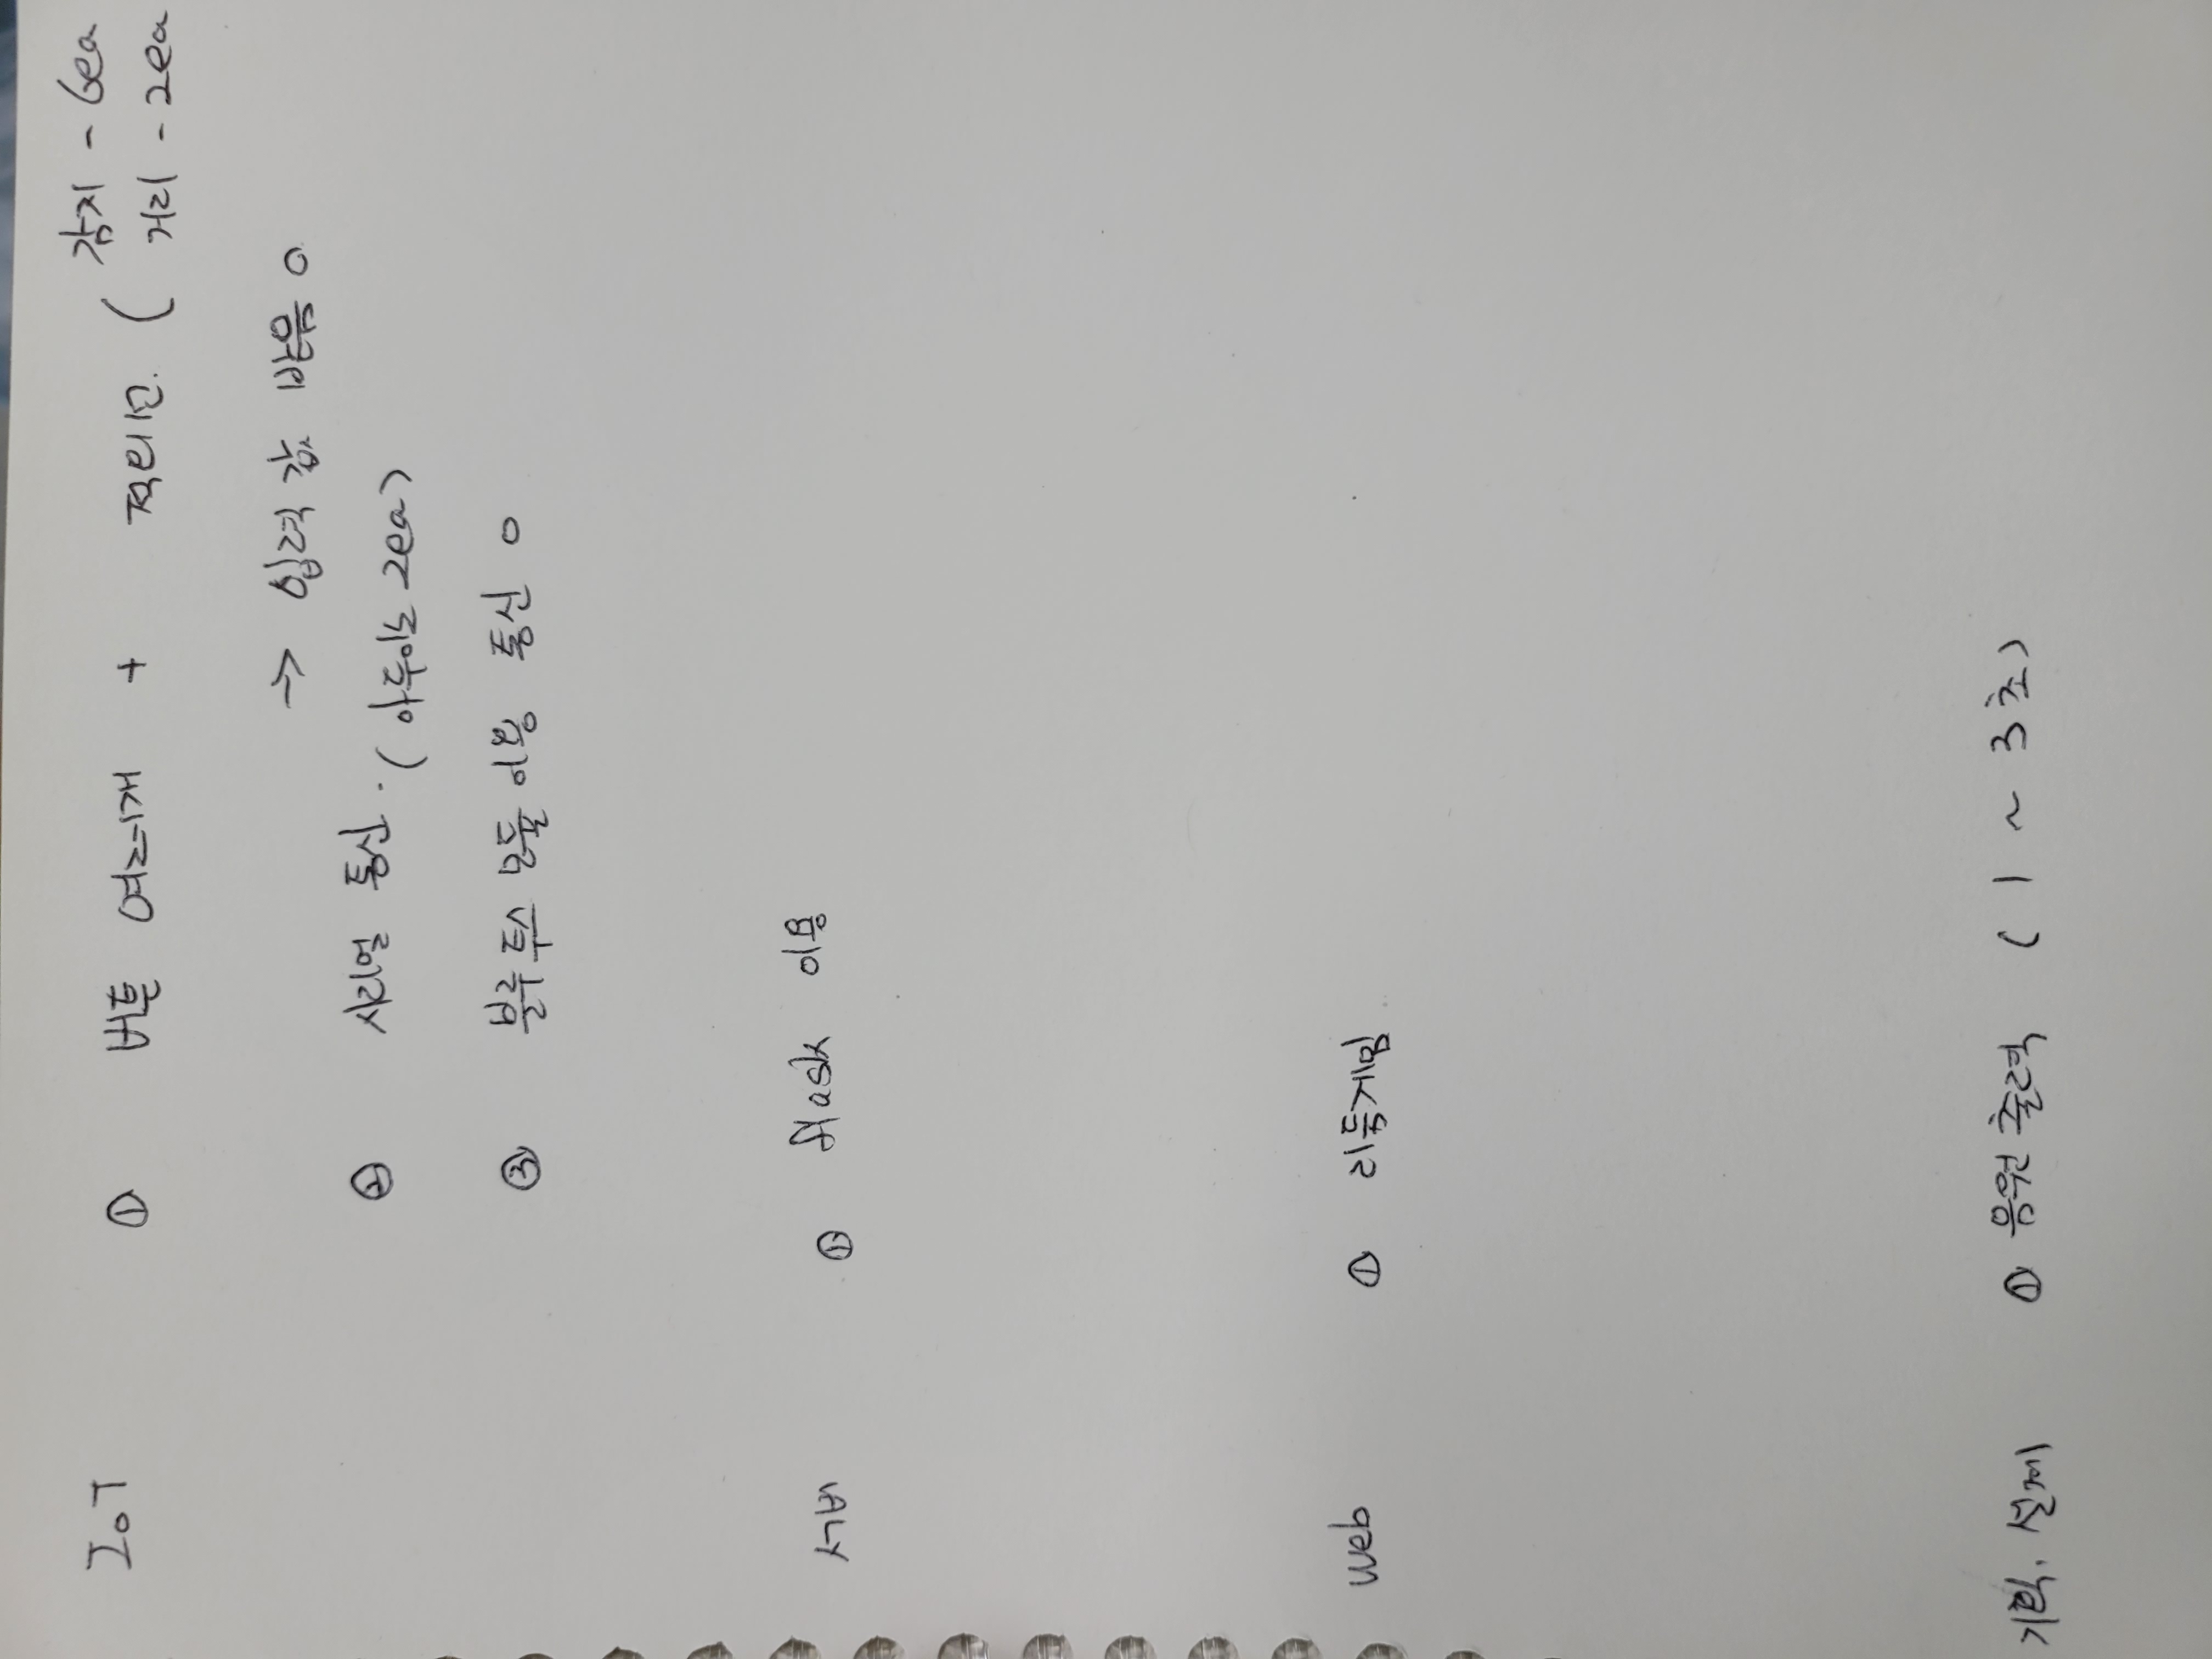 IoT ① 버튼 여러개 + 적외선. ( 감지 - 6ea
거리 - 2ea
→ 입력 값 받음 o
② 시리얼 통신. (아두이노 2ea)
③ 블루투스 모듈 이용 통신 o
서버 ① flask 이용
web ① 리듬게임
기획. 설계 ① 음원 출력 ( 1 ~ 3초)